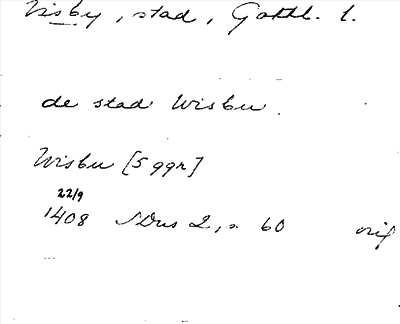 Visby, stad, Gottl. l.
de stad Wisbu.
Wisbu [5 ggr]
22/9
1408 SDns 2, s. 60 orig